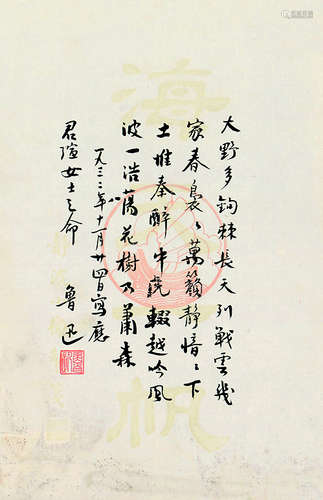 大野多鉤棘長天列戰雲幾
家春裊〻萬籟靜愔〻下
土惟秦醉中流輟越吟風
波一浩蕩花樹乃蕭森
一九三二年十一月廿四日寫應
君瑄女士之命
魯迅
海
帆